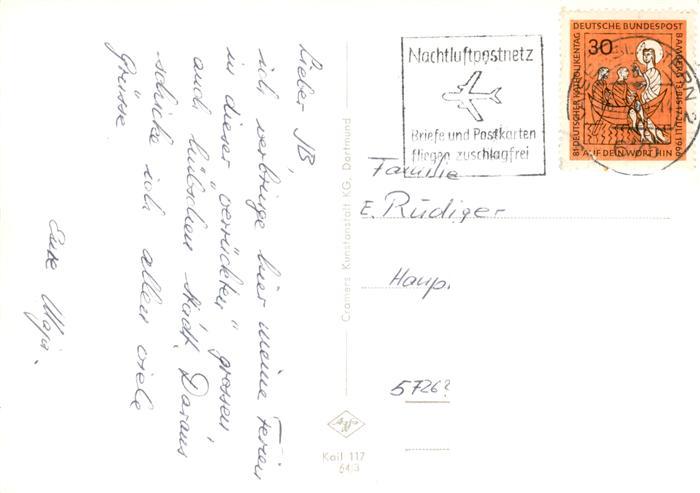 Lieber JB,
ich verbringe hier meine Ferien
in dieser "verrückten" grossen,
auch hübschen Stadt. Daraus
schicke ich allen viele
Grüsse.
Eure Maja.
Cramers Kunstanstalt KG. Dortmund
Kail 117
64/3
Nachtluftpostnetz
Briefe und Postkarten
fliegen zuschlagfrei
DEUTSCHE BUNDESPOST
30
81 · DEUTSCHER KATHOLIKENTAG
BAMBERG 13. BIS 17. JULI 1966
AUF DEIN WORT HIN
Familie
E. Rüdiger
Haup.
5726?